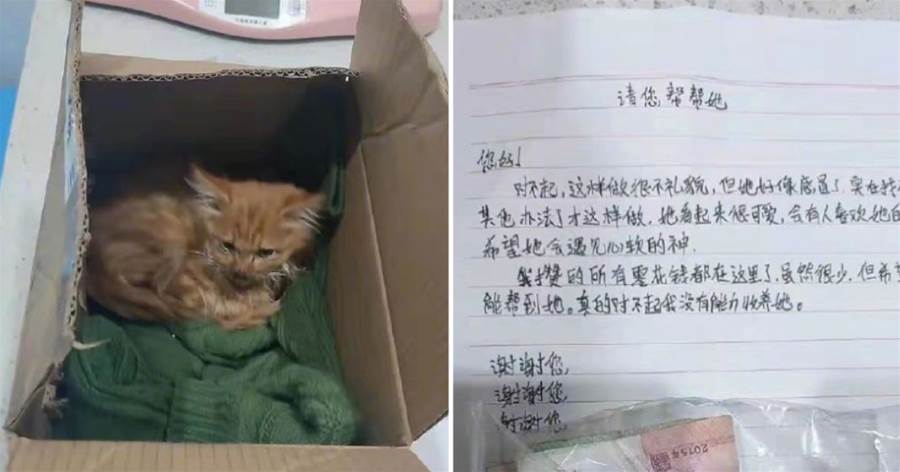 请您帮帮她
您好!
对不起,这样做很不礼貌,但她好像感冒了.实在找
其他办法了才这样做,她看起来很可爱,会有人喜欢她的
希望她会遇见心软的神.
我攒的所有零花钱都在这里了,虽然很少,但希
能帮到她。真的对不起我没有能力收养她。
谢谢您,
谢谢您,
谢谢您,
2015年